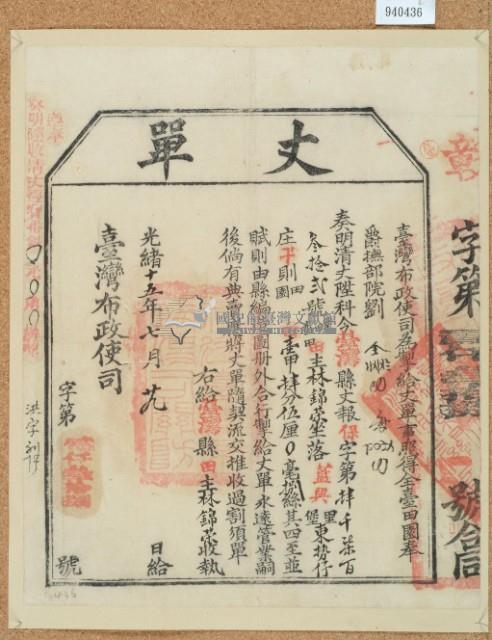 940436
丈單
臺灣布政使司為掣給丈單事照得全臺田園奉
爵撫部院劉
奏明清丈陞科今臺灣縣丈報保字第肆千柒百
叁拾弍號田主林錦榮坐落藍興里堡東勢仔
庄下則田園壹甲肆分伍厘0毫據縣其四至並
賦則由縣編造圖冊外合行掣給丈單永遠管業嗣
後倘有典賣應將丈單隨契流交推收過割須單
右給臺灣縣田主林錦榮收執
光緒十五年七月 日給
臺灣布政使司
字第
號
章
字第
號合同